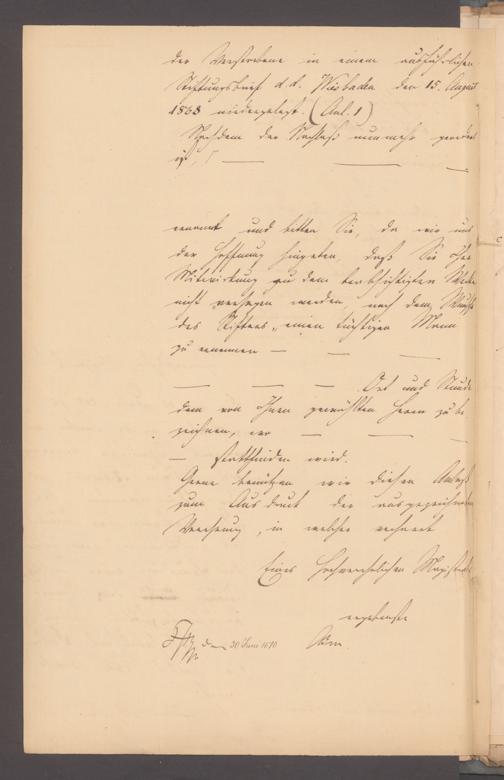 der Verstorbene in einem ausführlichen
Stiftungsbrief d. d. Wiesbaden den 15. August
1868 niedergelegt. (Anl. 1)
Nachdem der Nachlaß nunmehr geordnet
ist, — — —
ernannt und bitten Sie, da wir uns
der Hoffnung hingeben, daß Sie Ihre
Mitwirkung zu dem beabsichtigten Werke
nicht versagen werden, nach dem Wunsche
des Stifters „einen tüchtigen Mann
zu ernennen — — —
— — — Ort und Stunde
dem von Ihnen gewählten Herrn zu be
zeichnen, wo — — —
— stattfinden wird.
Gerne benützen wir diesen Anlaß
zum Ausdruck der ausgezeichneten
Verehrung, in welcher verharrt
Eines Hochverehrlichen Magistrats
ergebenste
Adm.
den 30 Juni 1870